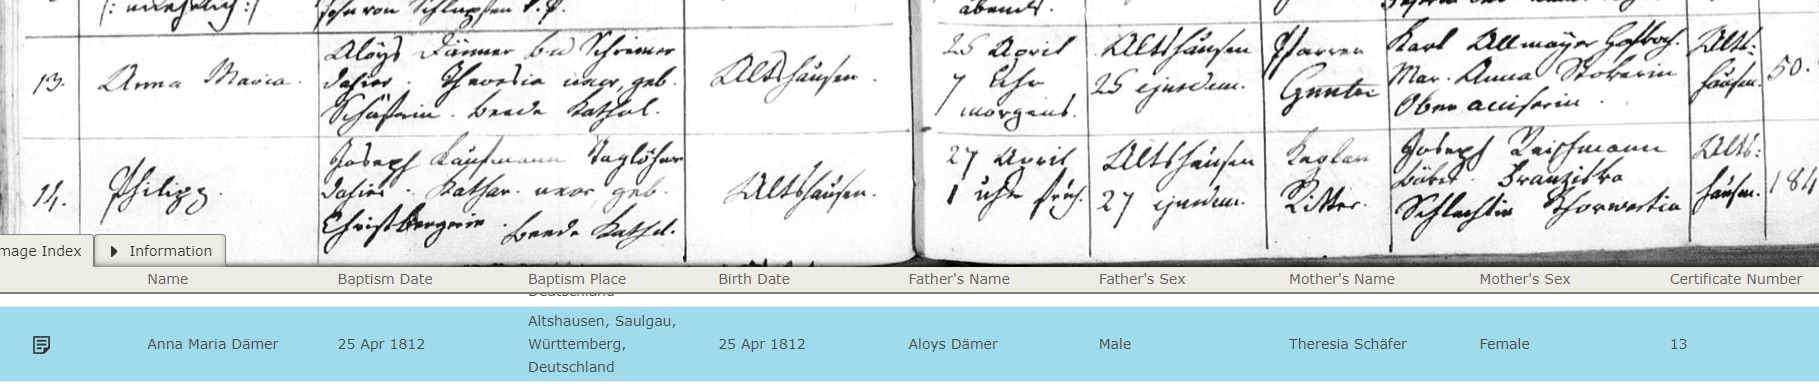 abends.
13. Anna Maria. Aloys Dämer b. u Schreiner dahier. Theresia uxor, geb. Schäferin. beede Kathol. Altshausen. 25 April 7 Uhr morgens. Altshausen 25 ejusdem. Pfarrer Karl Allmayer Mar. Anna Altshausen. 50.
14. Philipp. Joseph Kaufmann Taglöhner dahier. Kathar. uxor geb. Christbergerin. beede Kathol. Altshausen. 27 April 1 Uhr früh. Altshausen 27 ejusdem. Kaplan Ritter. Joseph Franziska Altshausen. 184
mage Index
Information
Name Baptism Date Baptism Place Birth Date Father's Name Father's Sex Mother's Name Mother's Sex Certificate Number
Deutschland
Anna Maria Dämer 25 Apr 1812 Altshausen, Saulgau, Württemberg, Deutschland 25 Apr 1812 Aloys Dämer Male Theresia Schäfer Female 13